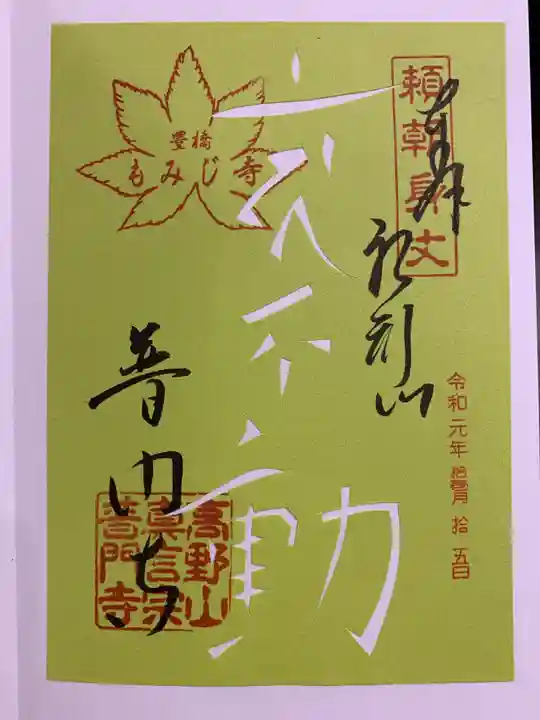 頼朝身丈
奉拝
船形山
不動
普門寺
豊橋
もみじ寺
高野山
真言宗
普門寺
令和元年 拾五日